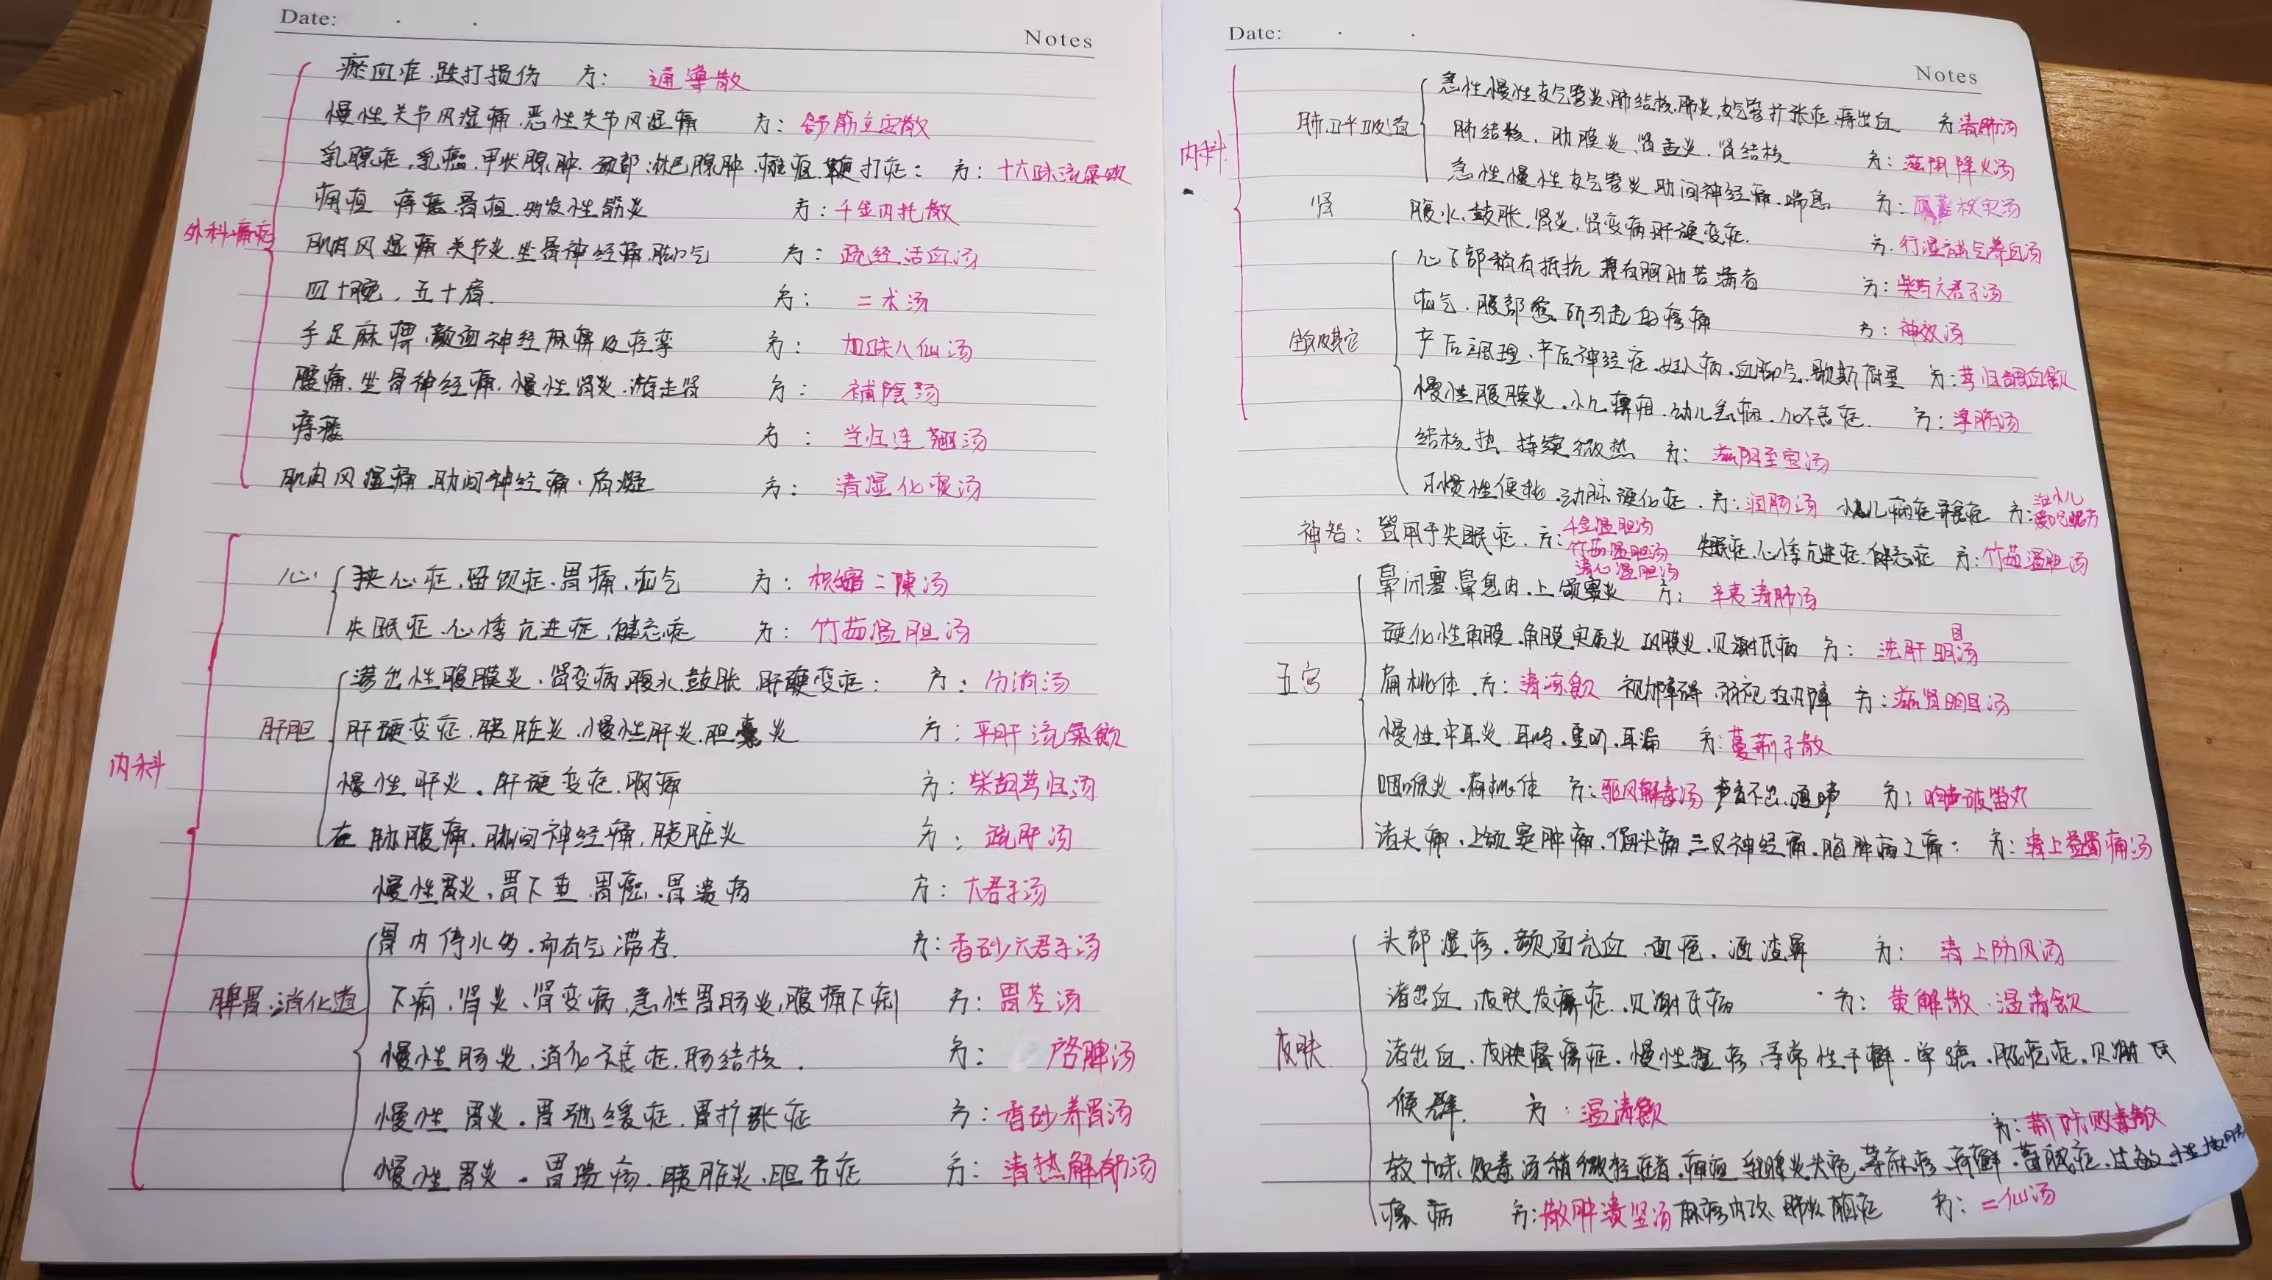 Date: . .
Notes
外科痛症
瘀血症.跌打损伤 方: 通導散
慢性关节风湿痛.恶性关节风湿痛 方: 舒筋立安散
乳腺症,乳癌,甲状腺肿.颈部.淋巴腺肿.瘫疽.鞭打症: 方: 十六味流氣飲
痈疽 痔瘘.骨疽.多发性筋炎 方: 千金内托散
肌肉风湿痛.关节炎.坐骨神经痛.脚气 方: 疏经活血汤
四十腕.五十肩. 方: 二术汤
手足麻痹.颜面神经麻痹及痉挛 方: 加味八仙汤
腰痛.坐骨神经痛.慢性肾炎.游走肾 方: 補陰汤
痔瘘 方: 当归连翘汤
肌肉风湿痛.肋间神经痛.肩凝 方: 清湿化痰汤
内科
心 狭心症.留饮症.胃痛.疝气 方: 枳缩二陳汤
失眠症.心悸亢进症.健忘症 方: 竹茹温胆汤
肝胆 渗出性腹膜炎.肾变病.腹水.鼓胀.肝硬变症: 方: 分消汤
肝硬变症.胰脏炎.慢性肝炎.胆囊炎 方: 平肝流氣飲
慢性肝炎.肝硬变症.胸痛 方: 柴胡芎归汤
在肋腹痛.肋间神经痛.胰脏炎 方: 疏肝汤
慢性胃炎.胃下垂.胃癌.胃溃疡 方: 六君子汤
脾胃.消化道 胃内停水的.而有气滞者. 方: 香砂六君子汤
下痢.肾炎.肾变病.急性胃肠炎,腹痛下痢 方: 胃苓汤
慢性肠炎.消化不良症.肠结核. 方: 启脾汤
慢性胃炎.胃弛缓症.胃扩张症 方: 香砂养胃汤
慢性胃炎.胃溃疡.胰脏炎.胆石症 方: 清热解郁汤
Date: . .
Notes
内科
肺.呼吸道 急性慢性支气管炎.肺结核.肺炎.支气管扩张症.痔出血 方:清肺汤
肺结核.肋膜炎.肾盂炎.肾结核 方: 滋阴降火汤
急性慢性支气管炎.肋间神经痛.喘息 方:
肾 腹水.鼓胀.肾炎.肾变病.肝硬变症. 方.行湿补气养血汤
心下部稍有抵抗.兼有胸肋苦满者 方: 柴芍六君子汤
疝气.腹部 所引起的疼痛 方: 神效汤
产后调理.产后神经症.妇人病.血脚气.歇斯底里 方:芎归调血飲
慢性腹膜炎.小儿 .幼儿 .化不良症. 方:
结核热 持续微热 方: 滋阴至宝汤
慢性便秘.动脉硬化症. 方: 润肠汤 小儿 方:
神智: 皆用于失眠症. 方: 千金温胆汤
竹茹温胆汤 失眠症.心悸亢进症.健忘症 方:竹茹温胆汤
清心温胆汤
五官 鼻闭塞.鼻息肉.上颌窦炎 方: 辛夷清肺汤
硬化性角膜.角膜实质炎.巩膜炎.贝谢氏病 方: 洗肝明目汤
扁桃体.方: 清凉飲 视力障碍 弱视 白内障 方: 滋肾明目汤
慢性中耳炎.耳鸣.重听.耳漏 方:蔓荆子散
咽喉炎.扁桃体 方: 驱风解毒汤 声音不出.哑声 方: 响声破笛丸
诸头痛.上颌窦肿痛.偏头痛.三叉神经痛.脑肿病之痛: 方: 清上蠲痛汤
皮肤 头部湿疹.颜面充血.面疱.酒渣鼻 方: 清上防风汤
诸出血.皮肤发癣症.贝谢氏病 方: 黄解散.温清飲
诸出血.皮肤瘙痒症.慢性湿疹.寻常性干癣.荨 . .贝谢氏
候群. 方: 温清飲
方:荆防败毒散
较十味败毒汤稍微轻症者,痈疽.乳腺炎.头疮.荨麻疹.疥癣.
方:散肿溃坚汤 麻疹内攻.肺炎 症 方: 二仙汤